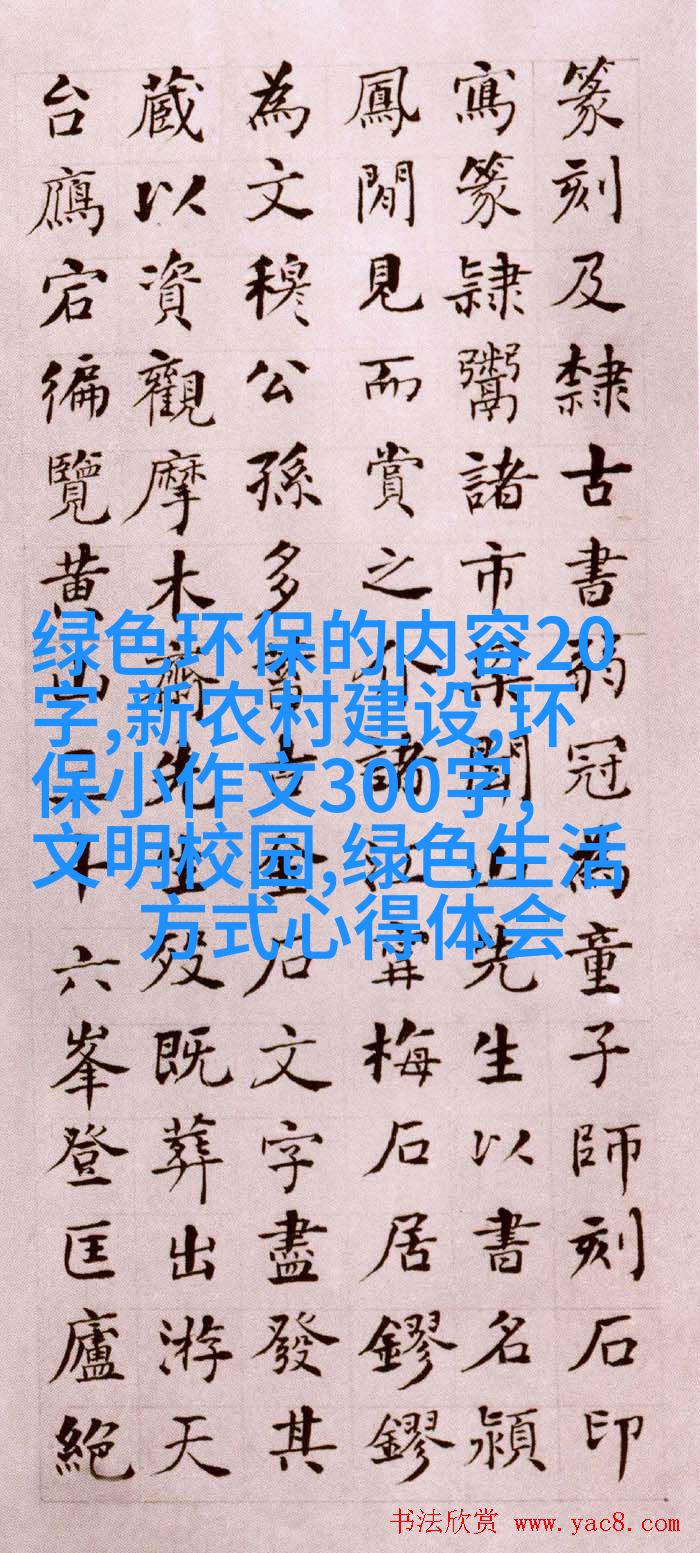 篆刻及隸古書弱冠為童子師刻石印
寫篆隸鬻諸市梁聞山先生以書名潁
鳳閒見而賞之介諸江寧梅石居鏐鏐
為文穆公孫多蓄古金石文字盡發其
藏以資觀摩木齋先生歿既葬出游天
台鴈宕徧覽黃山三十六峯登匡廬絕
绿色环保的内容20
字,新农村建设,环
保小作文300字,
文明校园,绿色生活
方式心得体会
书法欣赏 www.yac8.com